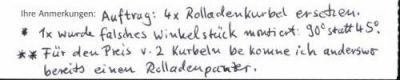 Ihre Anmerkungen: Auftrag: 4x Rolladenkurbel ersetzen.
* 1x wurde falsches Winkelstück montiert: 90° statt 45°.
** Für den Preis v. 2 Kurbeln bekomme ich anderswo
bereits einen Rolladenpanzer.